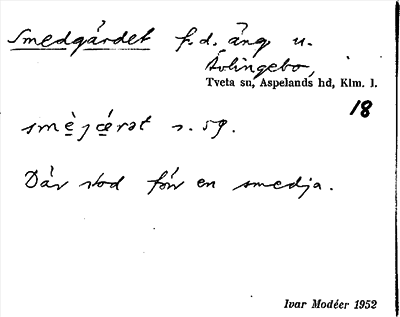 Smedgärdet f.d. äng u.
Åvlingebo,
Tveta sn, Aspelands hd, Klm. l.
18
smèjǽrət s. 59.
Där stod förr en smedja.
Ivar Modéer 1952